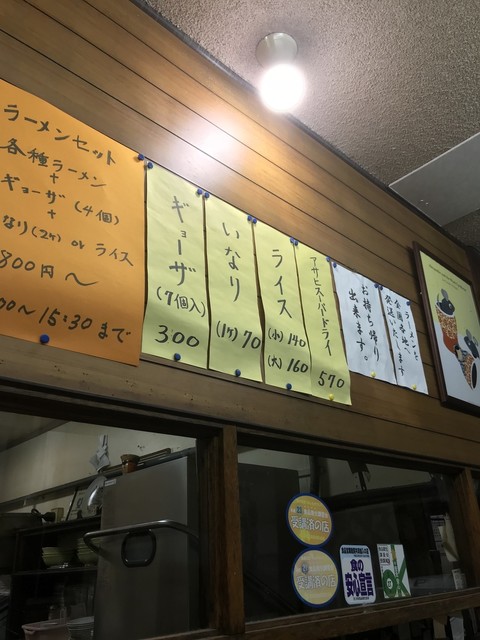 ラーメンセット
各種ラーメン
+
ギョーザ(4個)
+
なり(2ケ) or ライス
800円〜
00〜15:30まで
ギョーザ
(7個入)
300
いなり
(1ケ) 70
ライス
(小) 140
(大) 160
アサヒスーパードライ
570
お持ち帰り
出来ます。
ラーメンを
全国各地へ
発送いたします
受講済の店
受講済の店
食の
安心宣言
OK